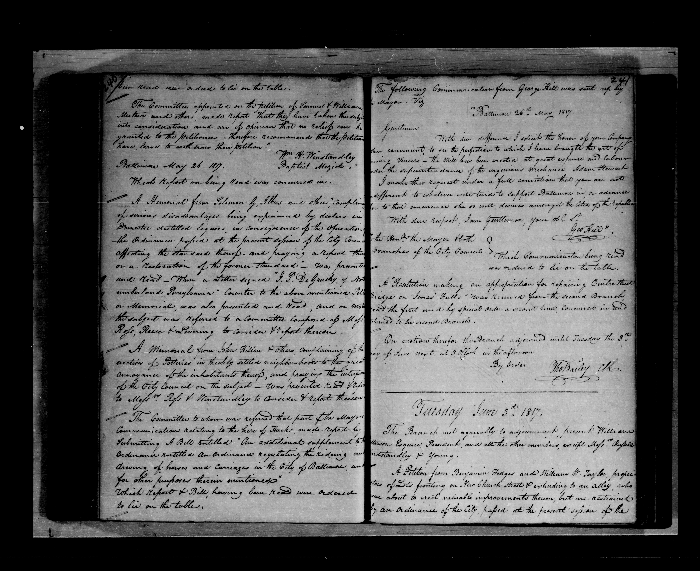 being read was ordered to lie on the table.
The Committee appointed on the petition of Samuel & William
and others made report "that they have taken the subject
into consideration and are of opinion that no relief can be
granted to the Petitioners therefore recommend that the petitioners
have leave to withdraw their petition."
Wm H. Winstandley
Baltimore May 26 1817. Baptist Mezick
Which Report on being read was concurred in.
A Memorial from Solomon G. and others complaining
of serious disadvantages being experienced by dealers in
Domestic distilled liquors, in consequence of the operation
the Ordinance passed at the present session of the City Council
affecting the standard thereof and praying a repeal
or a restoration of the former standard - was presented
and read - When a letter signed "
Pennsylvania" Counter to the above mentioned
or Memorial was also presented and read, and on motion
the subject was referred to a Committee composed of Messrs
Ross, & to consider & report thereon
A Memorial from John & others complaining of
of Potteries in thickly settled neighbourhoods to the
annoyance of the inhabitants thereof, and praying the
of the City Council on the subject - was presented read & referred
to Messrs Ross & Winstandley to consider & report thereon
The Committee to whom was referred that part of the Mayor's
Communications relating to the Hire of Hacks made report by
submitting A Bill entitled "An additional supplement to
Ordinance entitled An Ordinance regulating the riding and
driving of horses and Carriages in the City of Baltimore and
for other purposes therein mentioned"
Which Report & Bill having been read was ordered
to lie on the table.
241
The following Communication from George Hill was sent up by
Mayor. Viz
"Baltimore 26th May 1817
Gentlemen
With due deference I solicit the honor of your Company
to the perfection to which I have brought the art of
The Mill has been erected at great expense and labour
under the superintendence of the ingenious Mechanic Adam Stewart
I make this request under a full conviction that you are not
indifferent to whatever may tend to support Baltimore in a
to that eminence she so well deserves amongst the Cities of the Republic
With due respect, I am Gentlemen, your Hl St
Geo. Hill"
the Honble the Mayor & both
Branches of the City Council
Which Communication being read
was ordered to lie on the table.
A Resolution making an appropriation for repairing
Bridge on Jones' Falls, was received from the second Branch
read the first and by special order a second time, concurred in and
returned to the second Branch.
On motion the Branch adjourned until Tuesday the 3rd
day of June next at 3 O'clock in the afternoon
By Order
Tuesday June 3d. 1817.
The Branch met agreeably to adjournment, present William
Esquire President, and all the other members, except Messrs
Winstandley & Young.
A Petition from Benjamin and William W. Taylor
of lots fronting on New Church Street & extending to an alley, who
are about to erect valuable improvements thereon, but are restrained
by an Ordinance of the City passed at the present session of the